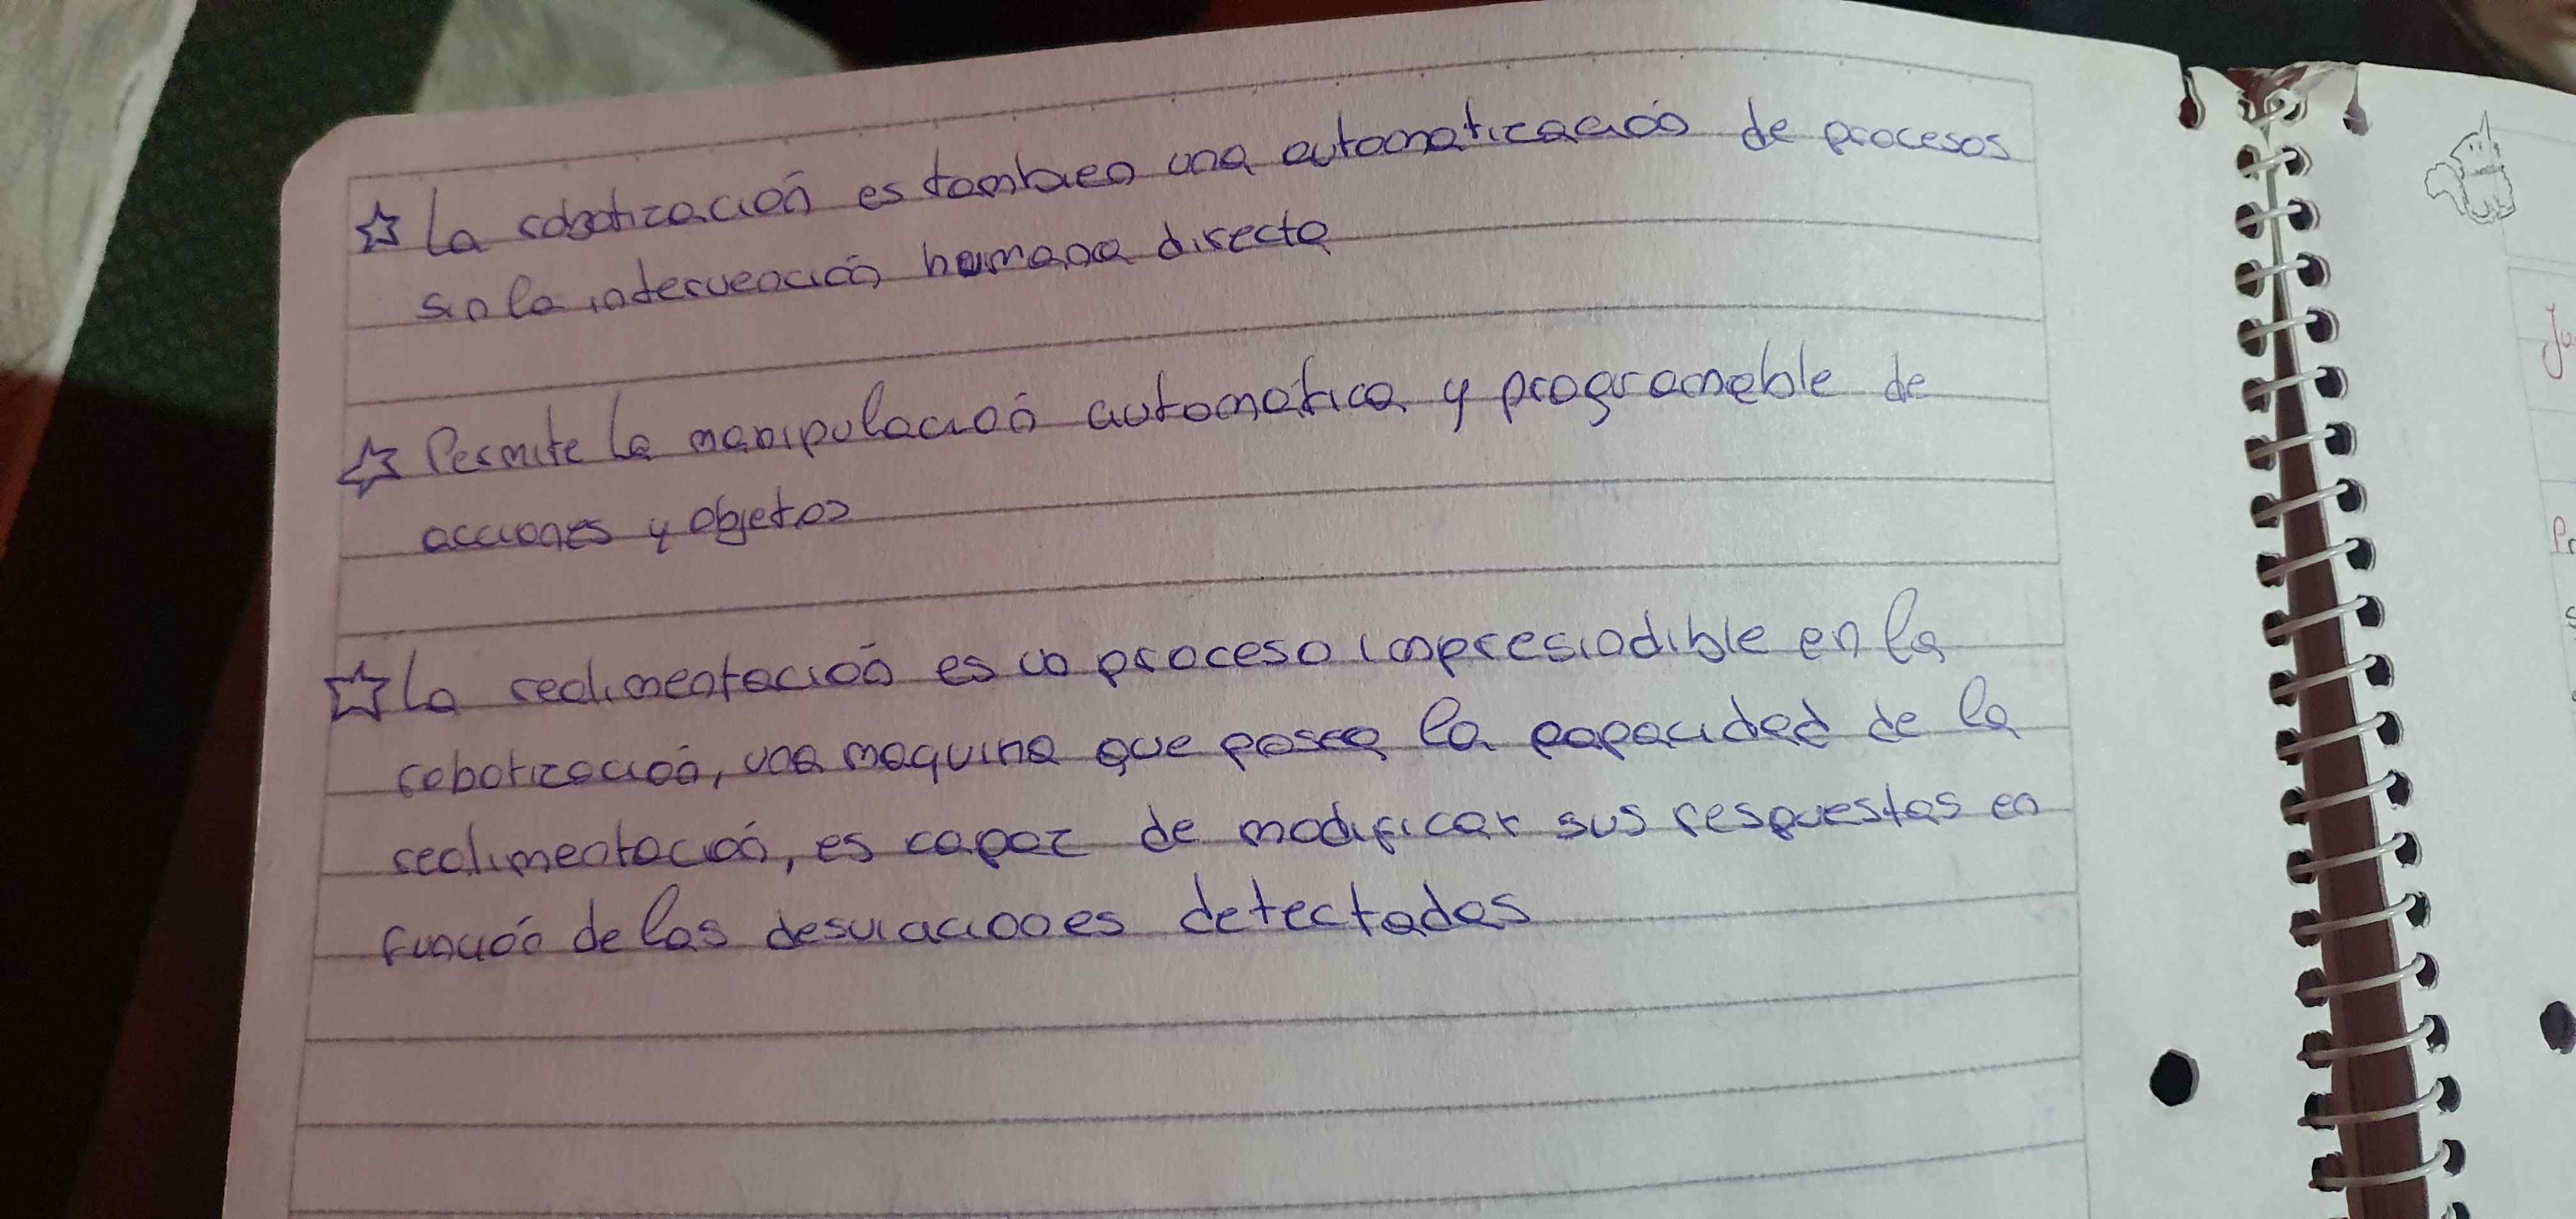 ☆ La robotización es tambien una automatización de procesos
sin la intervención humana directa
☆ Permite la manipulación automática y programable de
acciones y objetos
☆ La redimentación es un proceso impresindible en la
robotización, una maquina que posee la capacidad de la
redimentación, es capaz de modificar sus respuestas en
función de las desviaciones detectadas
Ju
Pr